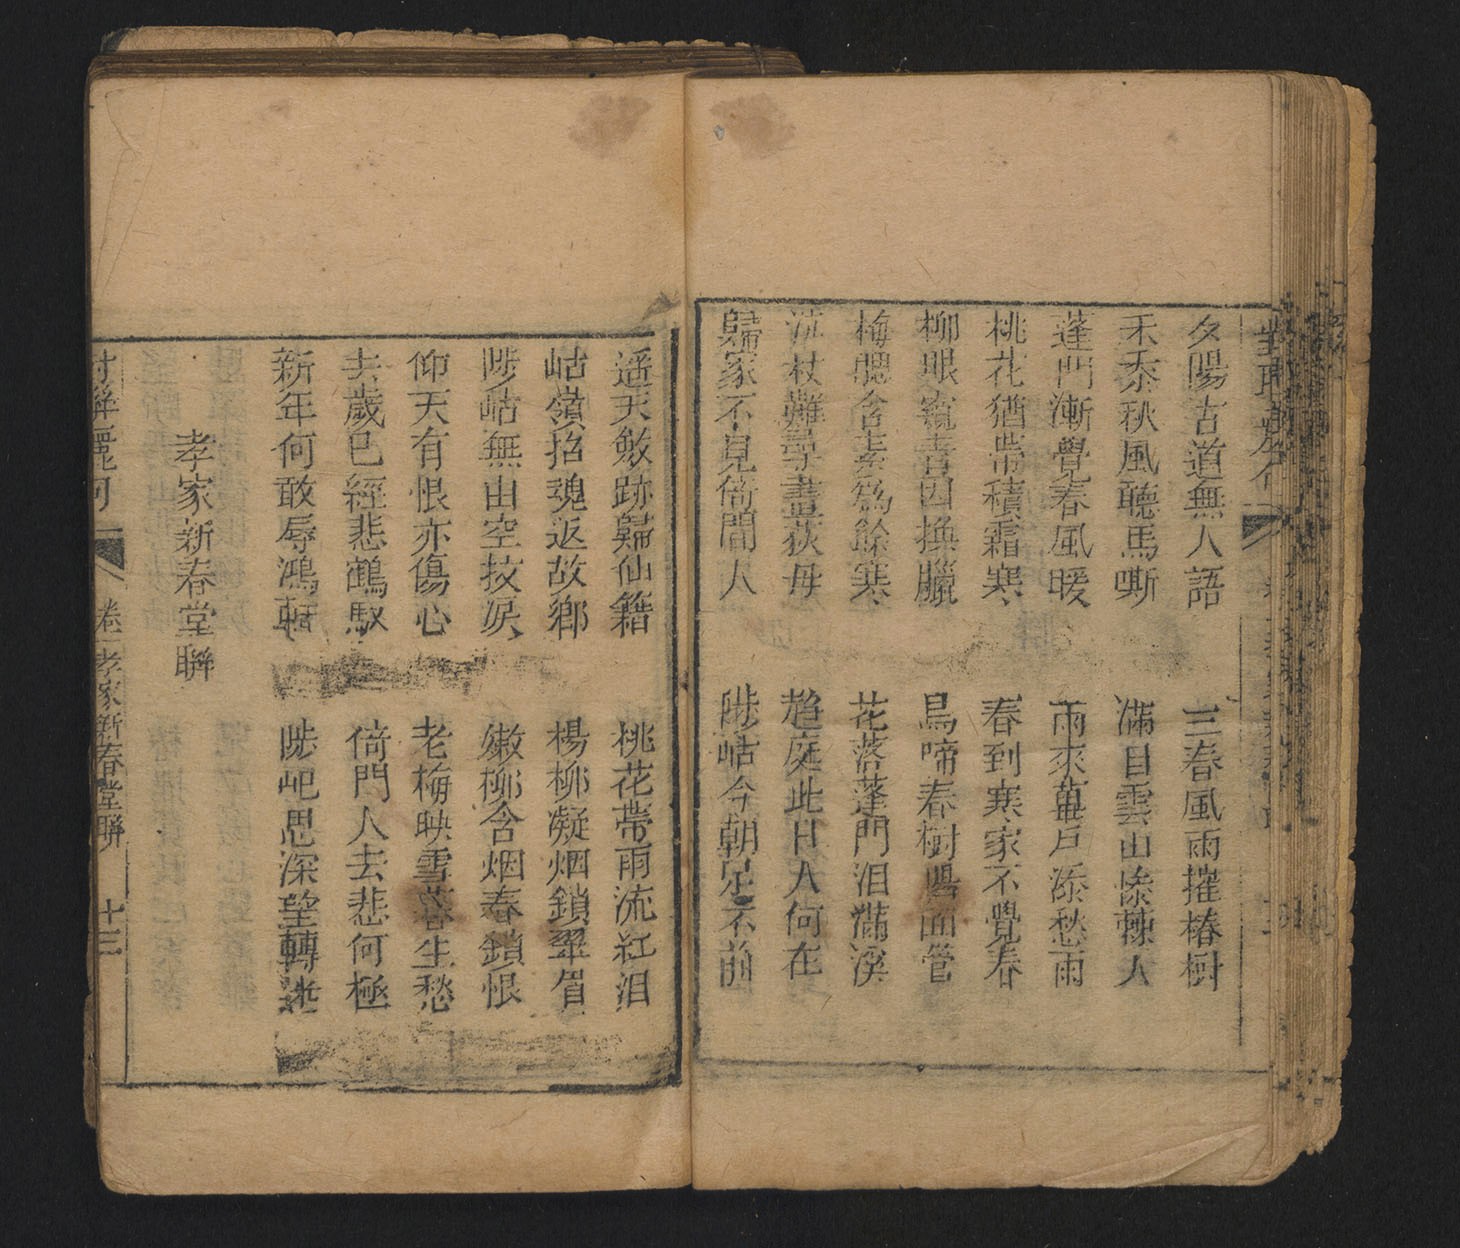 夕陽古道無人語
三春風雨摧椿樹
禾黍秋風聽馬嘶
滿目雲山慘棘人
蓬門漸覺春風暖
雨來蓽戶添愁雨
桃花猶帶積霜寒
春到寒家不覺春
柳眼窺青因換臘
鳥啼春樹愳面管
梅腮含素為餘寒
花落蓬門泪滿溪
泣杖難尋畫荻母
趨庭此日人何在
歸家不見倚閭人
陟岵今朝足不前
遥天斂跡歸仙籍
桃花帶雨流紅泪
岵嶺招魂返故鄉
楊柳凝烟鎖翠眉
陟岵無由空抆淚
嫩柳含烟春鎖恨
仰天有恨亦傷心
老梅映雪暮生愁
去歲已經悲鶴馭
倚門人去悲何極
新年何敢辱鴻軒
陟屺思深望轉迷
孝家新春堂聯
卷一 孝家新春堂聯 十三